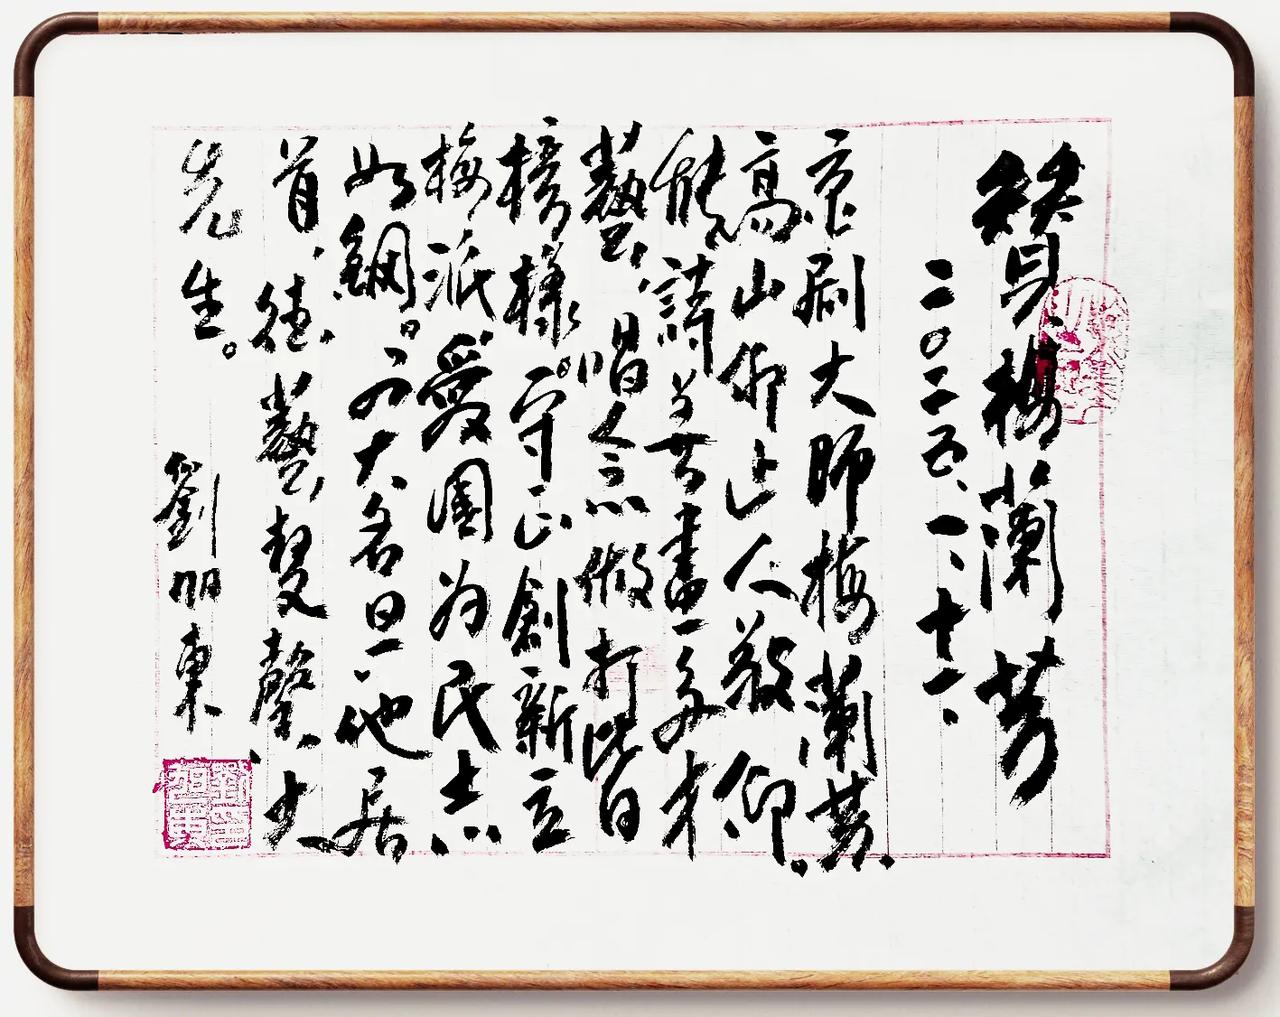 贊梅蘭芳
二〇二五、一、十一、
京劇大師梅蘭芳、
高山仰止人敬仰。
能詩善畫多才
藝、唱念做打皆
榜樣。守正創新立
梅派愛國為民志
如鋼。四大名旦他居
首、德藝雙馨大
先生。
劉明東